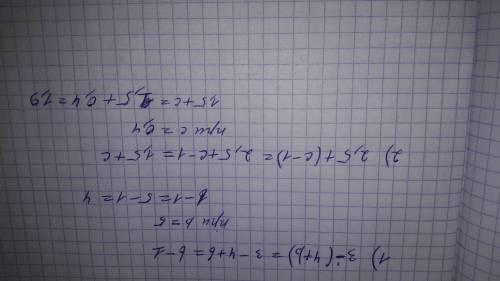 1) 3-(4+b) = 3-4+b = b-1
при b = 5
b-1 = 5-1 = 4
2) 2,5+(c-1) = 2,5+c-1 = 1,5+c
при c = 0,4
1,5+c = 1,5+0,4 = 1,9